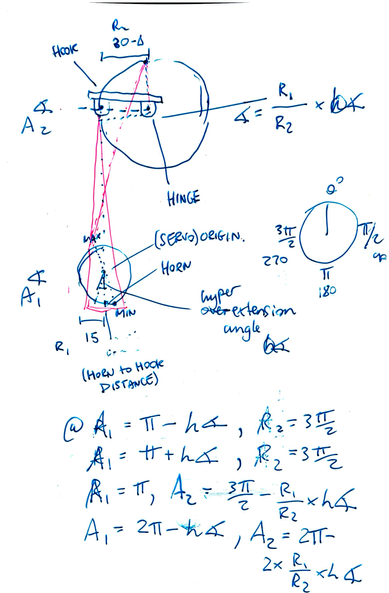 R₂
30-Δ
HOOK
∡
A₂
∡ = R₁/R₂ × h∡
HINGE
0°
3π/2
π/2
270
90
π
180
MAX
(SERVO) ORIGIN.
HORN
∡
A₁
hyper
overextension
angle
h∡
MIN
15
R₁
(HORN TO HOOK
DISTANCE)
@ A₁ = π - h∡, R₂ = 3π/2
A₁ = π + h∡, R₂ = 3π/2
R₁ = π, A₂ = 3π/2 - R₁/R₂ × h∡
A₁ = 2π - h∡, A₂ = 2π -
2 × R₁/R₂ × h∡